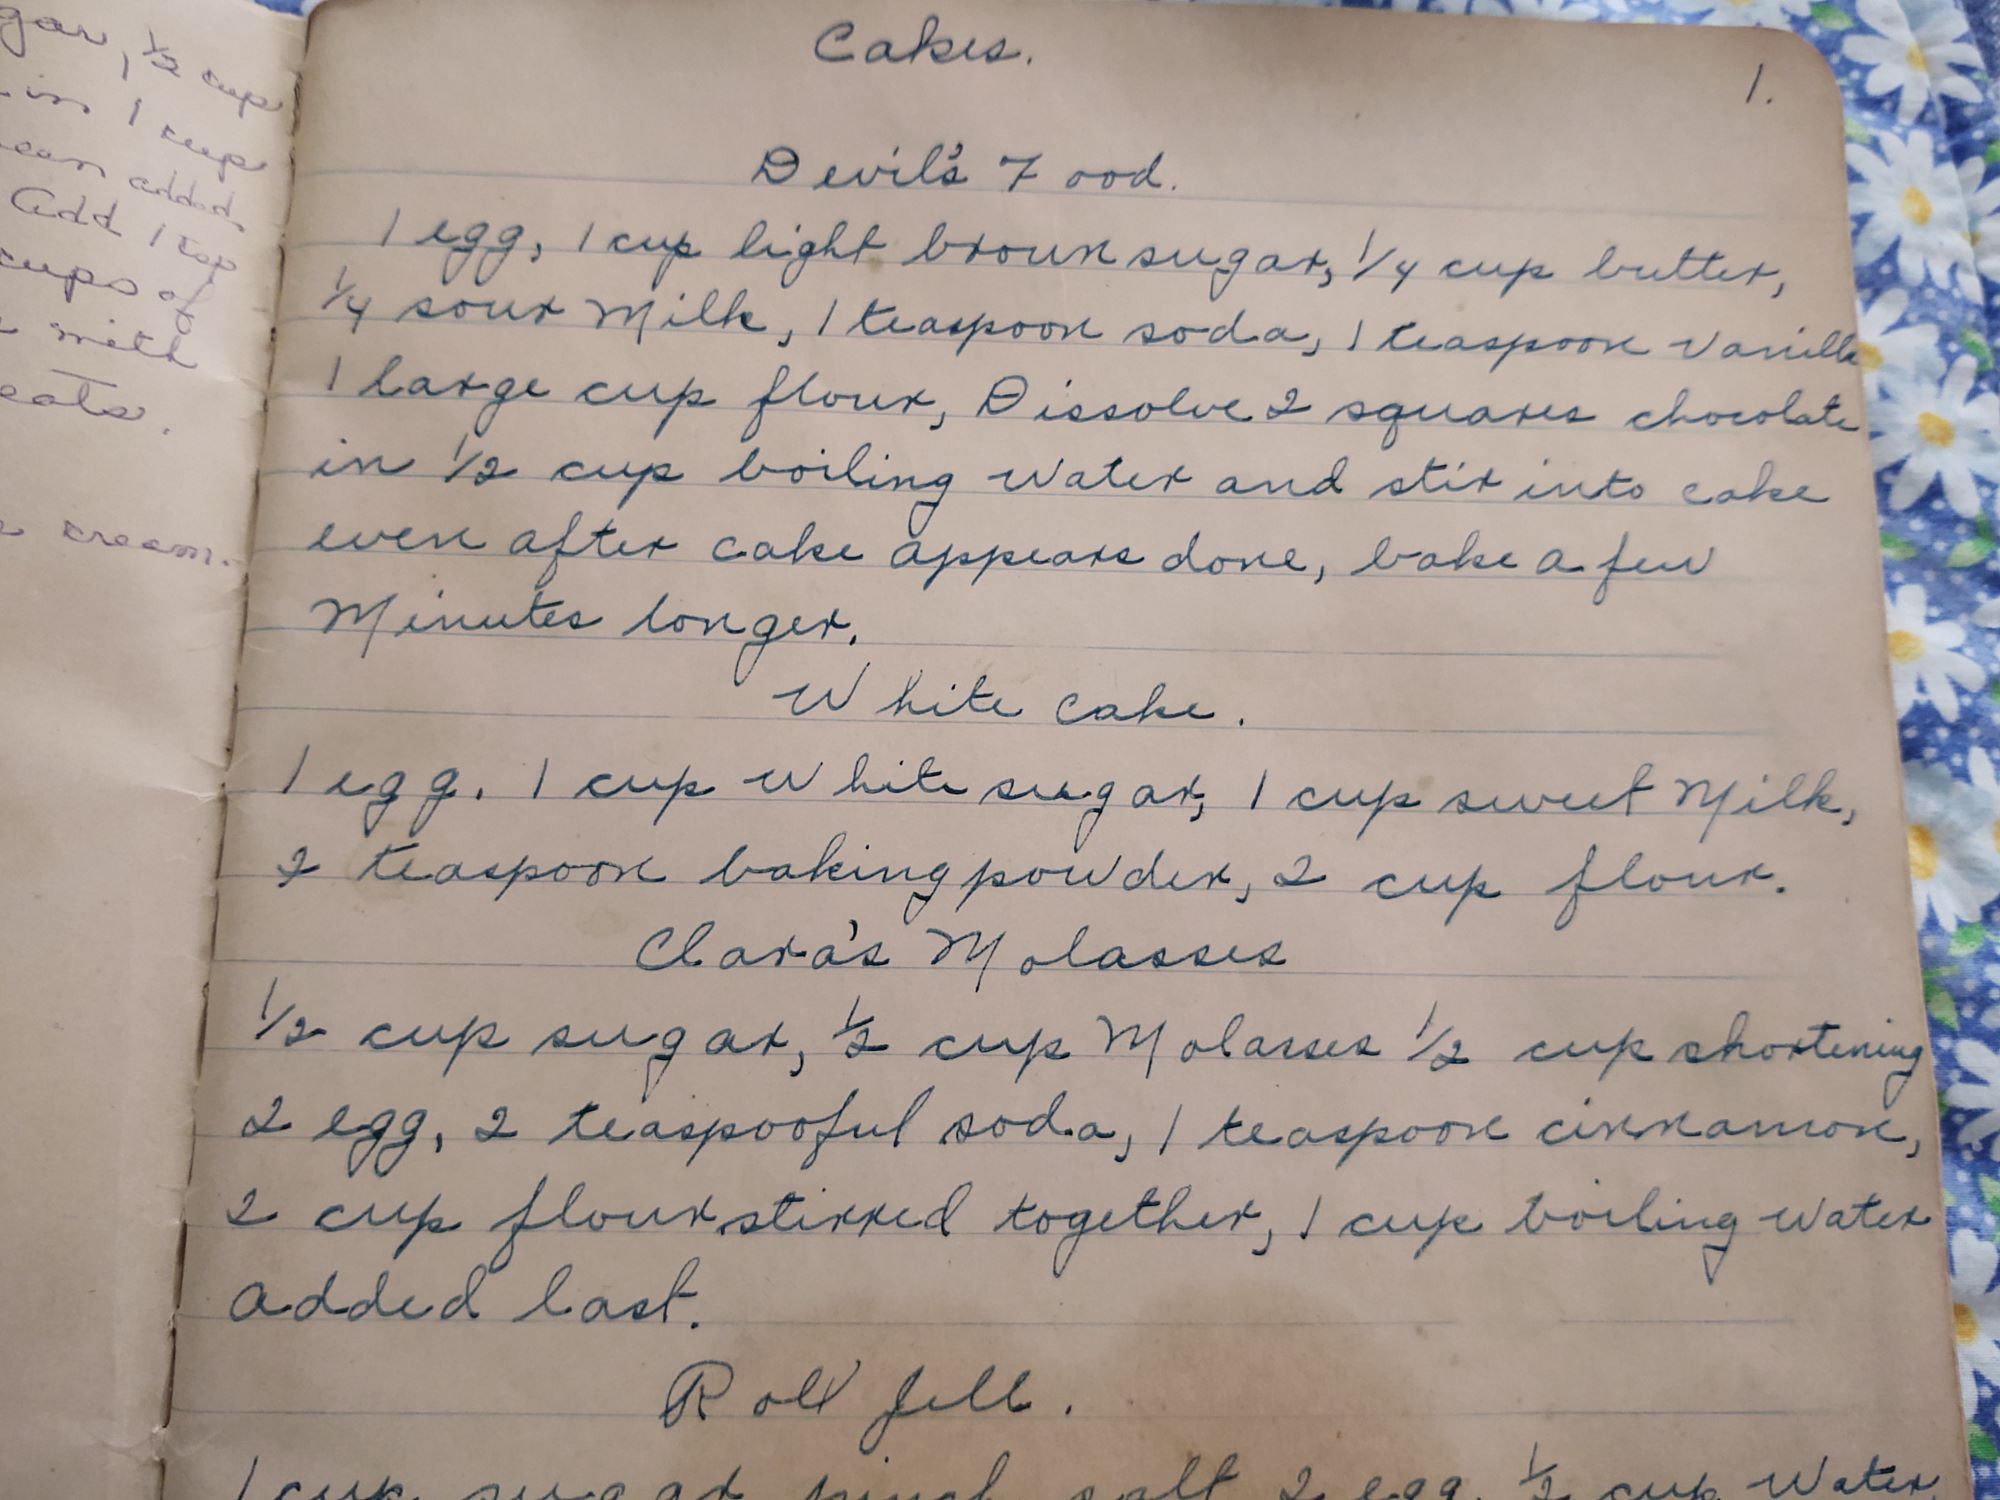 gar, 1/2 cup
in 1 cup
added
Add 1 tsp
cups of
milk
eats.
cream.
Cakes.
1.
Devil's Food.
1 egg, 1 cup light broun sugar, 1/4 cup butter,
1/4 sour Milk, 1 teaspoon soda, 1 teaspoon vanilla
1 large cup flour, Dissolve 2 squares chocolate
in 1/2 cup boiling water and stir into cake
even after cake appears done, bake a few
Minutes longer.
White cake.
1 egg. 1 cup White sugar, 1 cup sweet Milk,
2 teaspoon baking powder, 2 cup flour.
Clara's Molasses
1/2 cup sugar, 1/2 cup Molasses 1/2 cup shortening
2 egg, 2 teaspooful soda, 1 teaspoon cinnamon,
2 cup flour stirred together, 1 cup boiling water
added last.
Roll Jell.
1 cup sugar pinch salt 2 egg, 1/2 cup Water